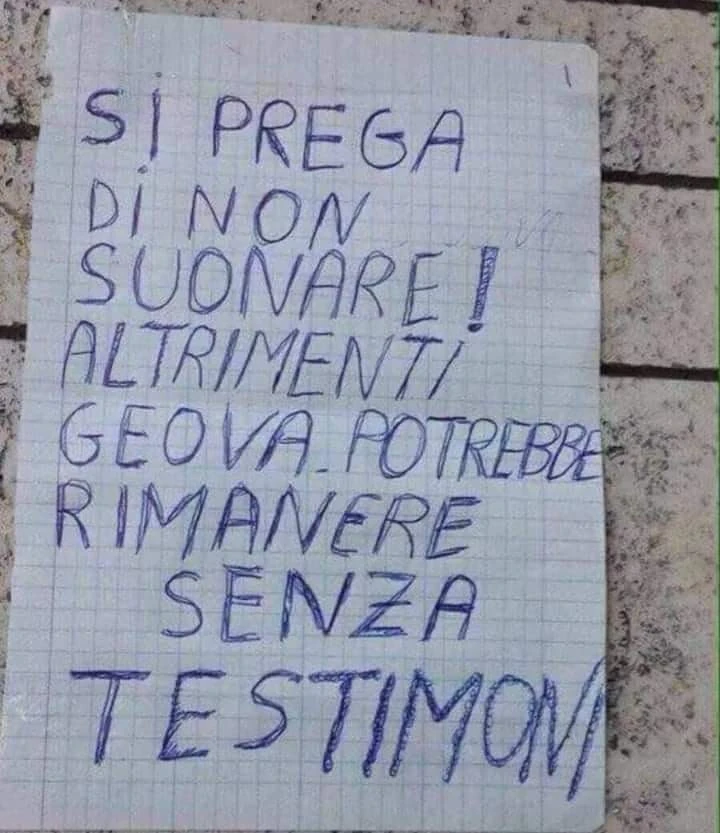 Si PREGA
Di NON
SUONARE!
ALTRIMENTI
GEOVA. POTREBBE
RIMANERE
SENZA
TESTIMONI